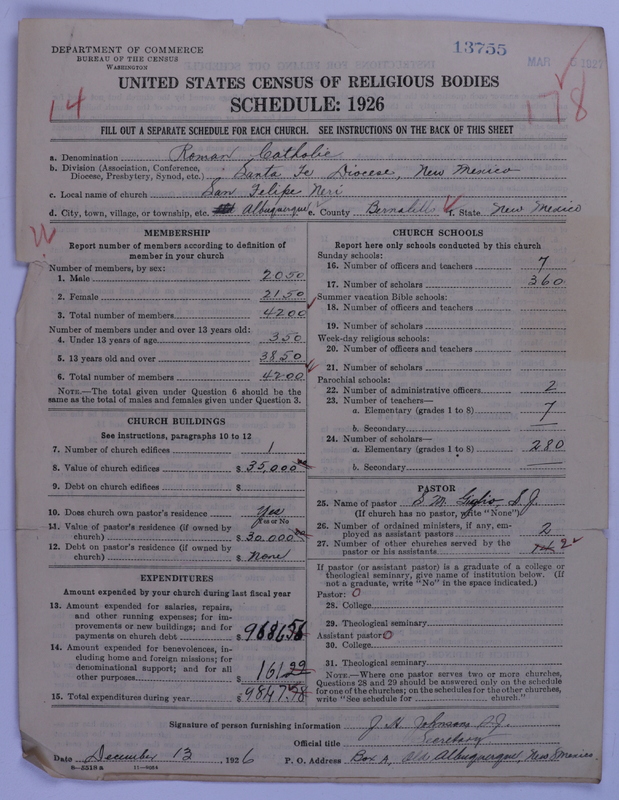 DEPARTMENT OF COMMERCE
BUREAU OF THE CENSUS
WASHINGTON
13755
MAR
UNITED STATES CENSUS OF RELIGIOUS BODIES
SCHEDULE: 1926
14
178
FILL OUT A SEPARATE SCHEDULE FOR EACH CHURCH. SEE INSTRUCTIONS ON THE BACK OF THIS SHEET
a. Denomination Roman Catholic
b. Division (Association, Conference, Diocese, Presbytery, Synod, etc.) Santa Fe Diocese, New Mexico
c. Local name of church San Felipe Neri
d. City, town, village, or township, etc. Albuquerque e. County Bernalillo f. State New Mexico
MEMBERSHIP
Report number of members according to definition of
member in your church
Number of members, by sex:
1. Male 2050
2. Female 2150
3. Total number of members 4200
Number of members under and over 13 years old:
4. Under 13 years of age 350
5. 13 years old and over 3850
6. Total number of members 4200
NOTE.—The total given under Question 6 should be
same as the total of males and females given under Question 3.
CHURCH BUILDINGS
See instructions, paragraphs 10 to 12
7. Number of church edifices 1
8. Value of church edifices $ 35,000 00
9. Debt on church edifices $
10. Does church own pastor's residence Yes
Yes or No
11. Value of pastor's residence (if owned by
church) $ 30.000 00
12. Debt on pastor's residence (if owned by
church) $ None
EXPENDITURES
Amount expended by your church during last fiscal year
13. Amount expended for salaries, repairs,
and other running expenses; for im-
provements or new buildings; and for
payments on church debt $ 9686 56
14. Amount expended for benevolences, in-
cluding home and foreign missions; for
denominational support; and for all
other purposes $ 161.22
15. Total expenditures during year $ 9847.78
CHURCH SCHOOLS
Report here only schools conducted by this church
Sunday schools:
16. Number of officers and teachers 7
17. Number of scholars 360
Summer vacation Bible schools:
18. Number of officers and teachers
19. Number of scholars
Week-day religious schools:
20. Number of officers and teachers
21. Number of scholars
Parochial schools:
22. Number of administrative officers 2
23. Number of teachers—
a. Elementary (grades 1 to 8) 7
b. Secondary —
24. Number of scholars—
a. Elementary (grades 1 to 8) 280
b. Secondary —
PASTOR
25. Name of pastor S. M. Giglio, S. J.
(If church has no pastor, write "None")
26. Number of ordained ministers, if any, em-
ployed as assistant pastors 2
27. Number of other churches served by the
pastor or his assistants 2
If pastor (or assistant pastor) is a graduate of a college or
theological seminary, give name of institution below. (If
not a graduate, write "No" in the space indicated.)
Pastor:
28. College
29. Theological seminary
Assistant pastor:
30. College
31. Theological seminary
NOTE.—Where one pastor serves two or more churches,
Questions 28 and 29 should be answered only on the schedule
for one of the churches; on the schedules for the other churches,
write "See schedule for church."
Signature of person furnishing information J. N. Johnson S.J.
Official title Secretary
Date December 13 1926 P. O. Address Box A, Old Albuquerque, New Mexico
8-5518 a 11-8084